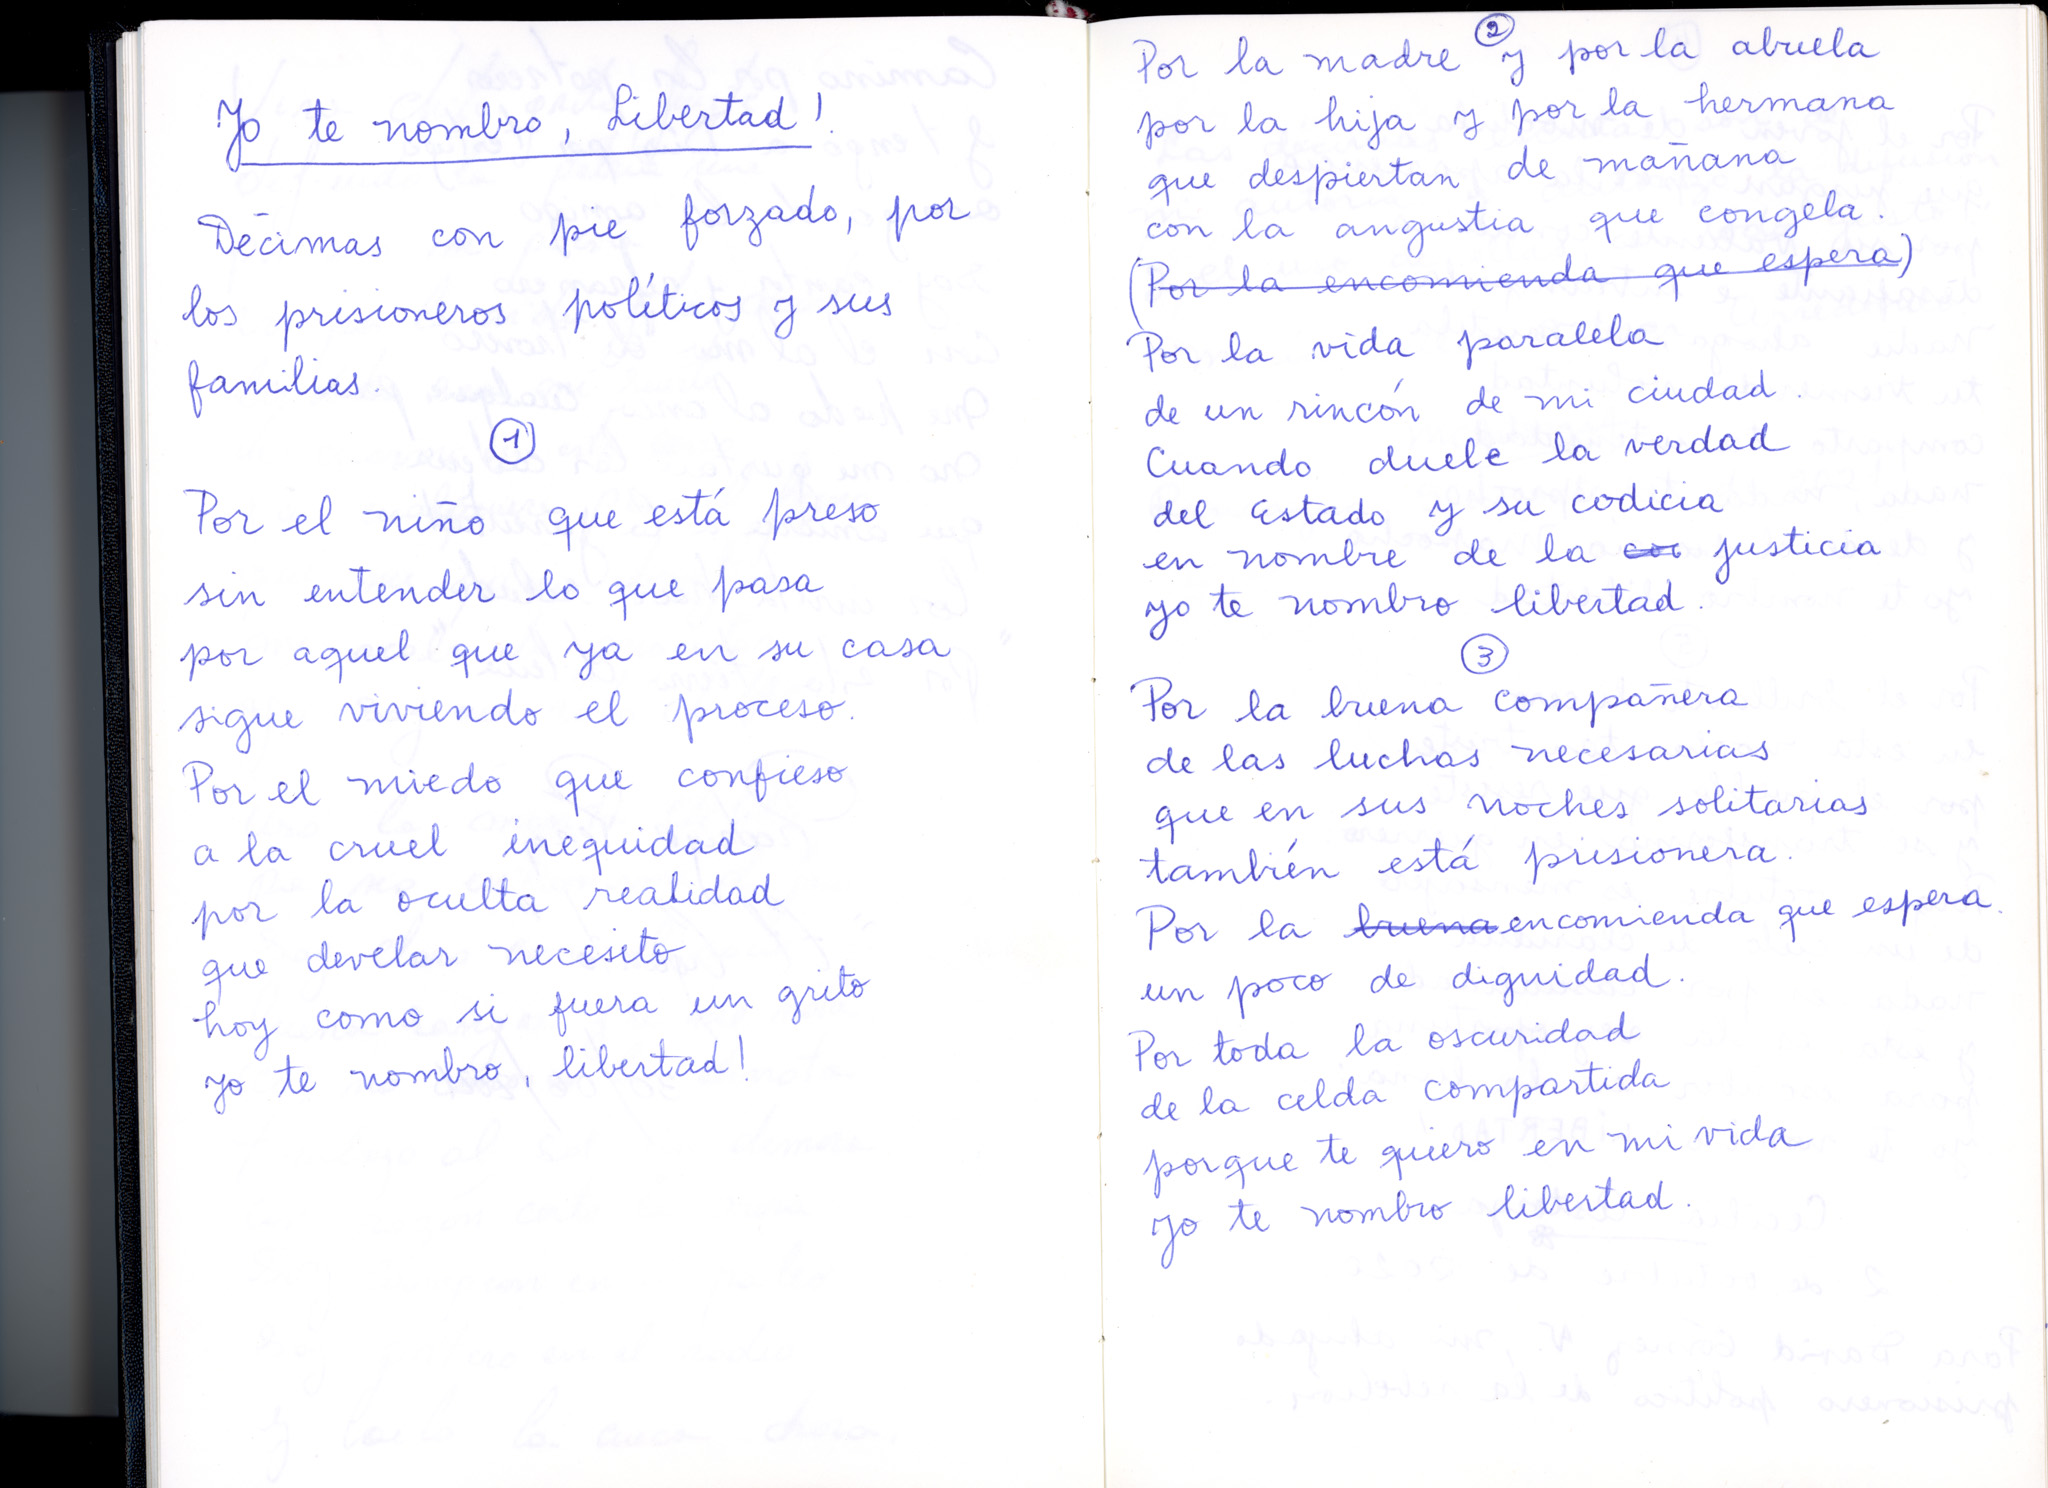 Yo te nombro, Libertad!
Décimas con pie forzado, por
los prisioneros políticos y sus
familias.
1
Por el niño que está preso
sin entender lo que pasa
por aquel que ya en su casa
sigue viviendo el proceso.
Por el miedo que confieso
a la cruel inequidad
por la oculta realidad
que develar necesito
hoy como si fuera un grito
yo te nombro, libertad!
2
Por la madre y por la abuela
por la hija y por la hermana
que despiertan de mañana
con la angustia que congela.
(Por la encomienda que espera)
Por la vida paralela
de un rincón de mi ciudad.
Cuando duele la verdad
del Estado y su codicia
en nombre de la justicia
yo te nombro libertad.
3
Por la buena compañera
de las luchas necesarias
que en sus noches solitarias
también está prisionera.
Por la buena encomienda que espera.
un poco de dignidad.
Por toda la oscuridad
de la celda compartida
porque te quiero en mi vida
yo te nombro libertad.